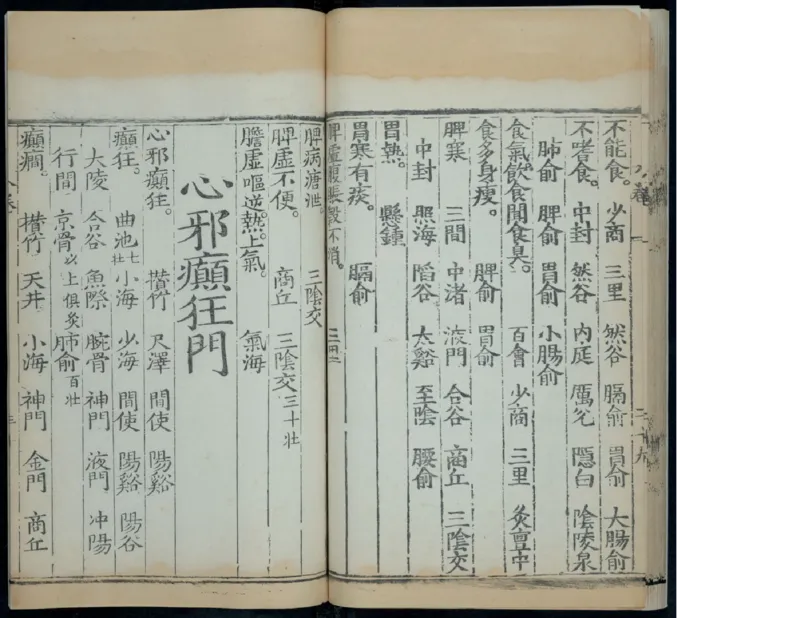 不能食。 少商 三里 然谷 膈俞 胃俞 大腸俞
不嗜食。 中封 然谷 內庭 厲兊 隱白 陰陵泉
肺俞 脾俞 胃俞 小腸俞
食氣飲食聞食臭。 百會 少商 三里 灸亶中
食多身瘦。 脾俞 胃俞
脾寒 三間 中渚 液門 合谷 商丘 三陰交
中封 照海 陷谷 太谿 至陰 腰俞
胃熱。 懸鍾
胃寒有痰。 膈俞
脾虛腹脹穀不消。 三里
脾病溏泄。 三陰交
脾虛不便。 商丘 三陰交三十壯
膽虛嘔逆。熱。上氣。 氣海
心邪癲狂門
心邪癲狂。 攅竹 尺澤 間使 陽谿
癲狂。 曲池七壯 小海 少海 間使 陽谿 陽谷
大陵 合谷 魚際 腕骨 神門 液門 冲陽
行間 京骨以上俱灸 肺俞百壯
癲癇。 攅竹 天井 小海 神門 金門 商丘